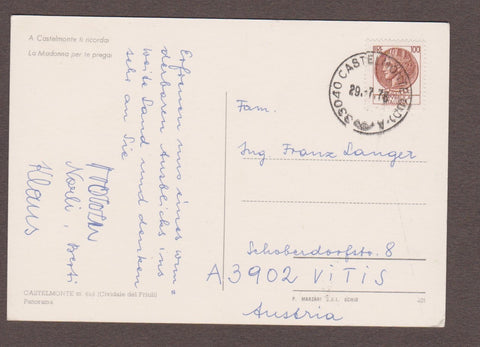 A Castelmonte ti ricordai
La Madonna per te pregai
Erfreuen uns eines wun-
derbaren Ausblicks ins
weite Land und denken
sehr an Sie
Norli, Berti
Klaus
CASTELMONTE m. 618 (Cividale del Friuli)
Panorama
100
33040 CASTELMONTE (UD) - A
29.-7.76
Fam.
Ing Franz Langer
Schoberdorfstr. 8
A 3902 VITIS
Austria
P. MARZARI S.R.L. SCHIO